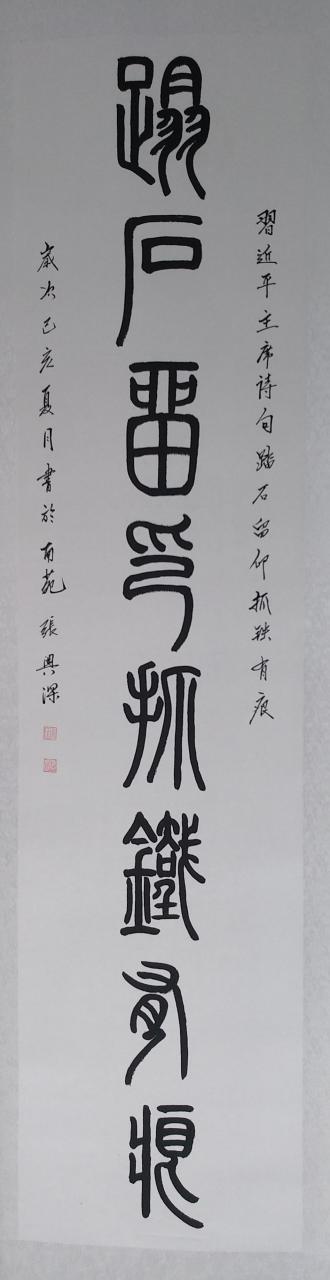 習近平主席诗句踏石留印抓鉄有痕
蹋石留印抓鐵有痕
歲次己亥夏月書於南苑張興深